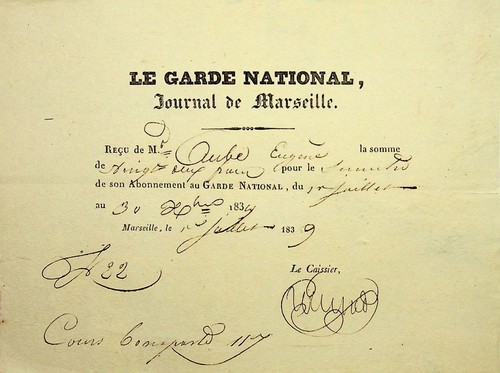 LE GARDE NATIONAL,
Journal de Marseille.
REÇU de M.r Aube Eugène la somme
de Vingt deux pour le Semestre
de son Abonnement au GARDE NATIONAL, du 1er Juillet
au 30 Xbre 1839
Marseille, le 1er Juillet 1839
Le Caissier,
22
Cours Bonaparte 117